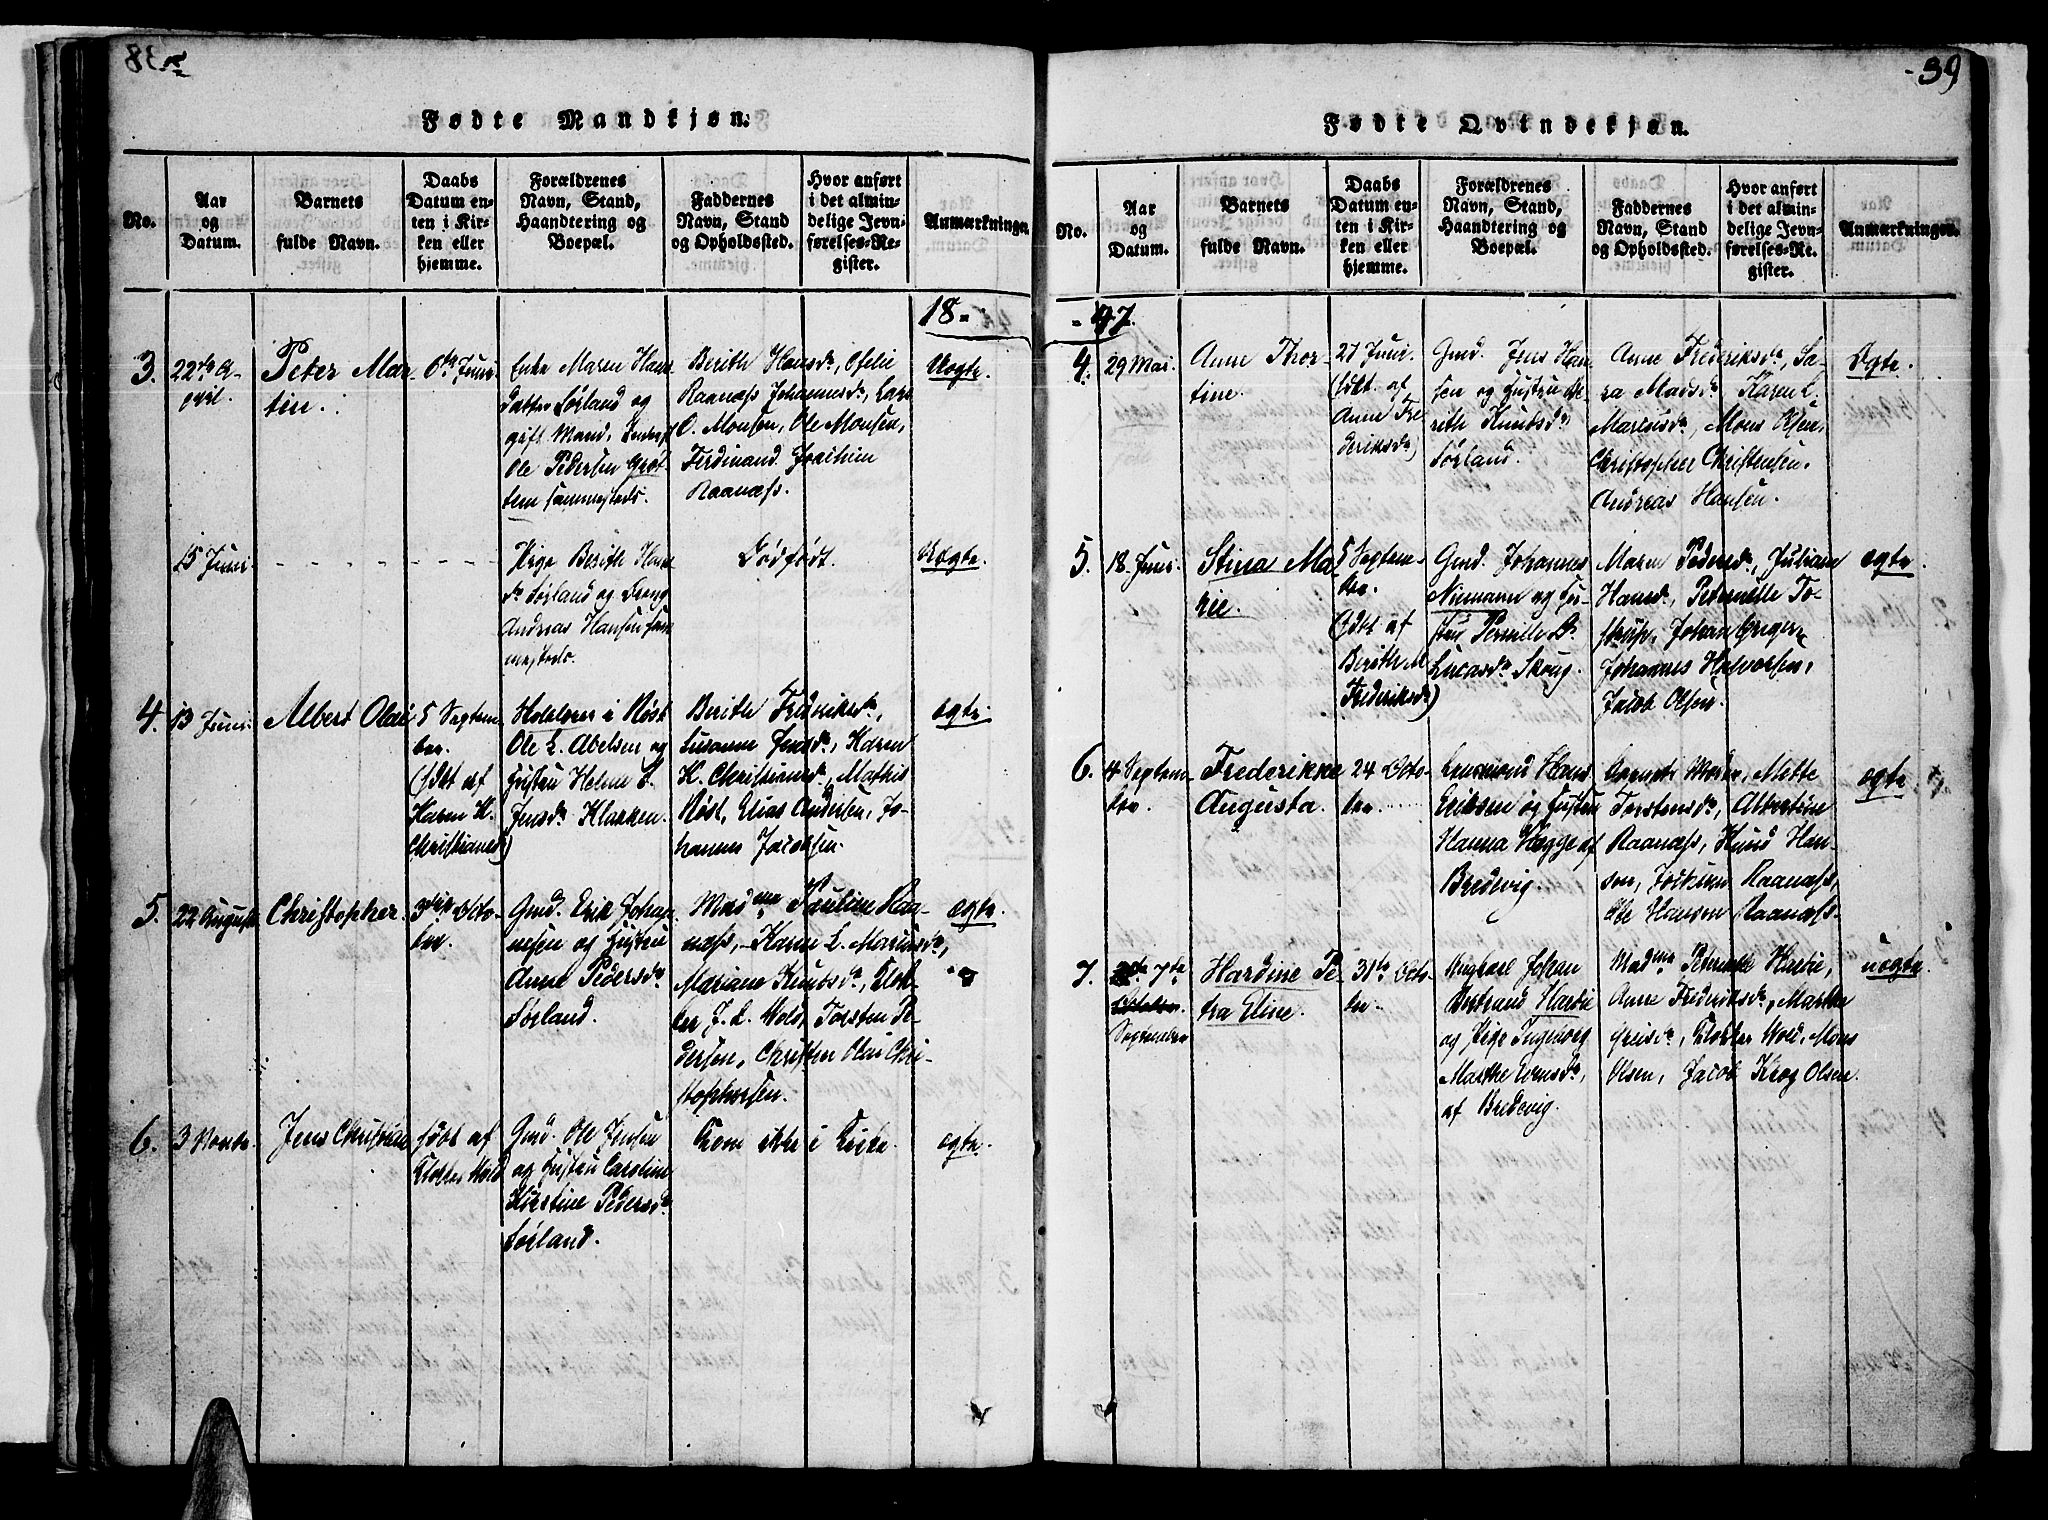 38
Fødte Mandkjøn.
No.
Aar
og
Datum.
Barnets
fulde Navn.
Daabs
Datum en-
ten i Kir-
ken eller
hjemme.
Forældrenes
Navn, Stand,
Haandtering og
Boepæl.
Faddernes
Navn, Stand
og Opholdssted.
Hvor anført
i det almin-
delige Jevn-
førelses-Re-
gister.
Anmærkninger.
18-
3.
22de A-
pril.
Peter Mar-
tin.
6te Juni
Enke Maren Hans
Datter Sørland og
gift Mand,
Ole Pedersen Grøt-
tem sammesteds.
Berith Hansdr, Ofelie
Raanæss Johannesdr, Lars
O. Monsen, Ole Monsen,
Ferdinand Joachim
Raanæss.
Uegte.
15 Juni
Pige Berith Hans
dr Sørland og Dreng
Andreas Hansen sam
mesteds.
Dødfødt.
Uægte.
4.
13 Juni
Albert Olai
5 Septem-
ber.
(døbt af
Karen K.
Christiansdr)
i Røst
Ole L. Abelsen og
Hustru Helene E.
Jensdr Klakken.
Berith Fredriksdr,
Susanne Jensdr, Karen
K. Christiansdr, Mathis
Røst, Elias Andersen, Jo-
hannes Jacobsen.
ægte.
5.
22 August
Christopher.
3die Octo-
ber.
Gmd. Erik Johan
nesen og Hustru
Anne Pedersdr
Sørland.
Madme Pauline Raa-
næss, Karen L. Mariusdr,
Mariane Knudsdr, Klok-
ker J. L. Wold, Torsten Pe-
dersen, Christen Olai Chri-
stophersen.
ægte.
6.
3 Novbr.
Jens Christian
døbt af
Klokker Wold
Gmd. Ole Jensen
og Hustru Caroline
Kirstine Pedersdr
Sørland.
Kom ikke i Kirke.
ægte.
39
Fødte Qvindekjøn.
No.
Aar
og
Datum.
Barnets
fulde Navn.
Daabs
Datum en-
ten i Kir-
ken eller
hjemme.
Forældrenes
Navn, Stand,
Haandtering og
Boepæl.
Faddernes
Navn, Stand
og Opholdsted.
Hvor anført
i det almin-
delige Jevn-
førelses-Re-
gister.
Anmærkninger.
- 47.
4.
29 Mai.
Anne Thor-
tine.
27 Juni.
(døbt af
Anne Fre
deriksdr)
Gmd. Jens Han
sen og Hustru Be-
rith Knudsdr
Sørland.
Anne Frederiksdr, Sa-
ra Madsdr, Karen L.
Mariusdr, Mons Olsen,
Christopher Christensen,
Andreas Hansen.
Ægte.
5.
18 Juni.
Stina Ma-
rie.
5 Septem-
ber.
(døbt af
Berith M
Frederiksdr)
Gmd. Johannes
Niemann og Hu-
stru Pernille
Lucasdr Skoug.
Maren Pedersdr, Juliane
Hansdr, Peternelle To-
strup, Johan Greger,
Johannes Halvorsen,
Jacob Olsen.
ægte.
6.
4 Septem
ber.
Frederikke
Augusta.
24 Octo-
ber.
Hans
Eriksen og Hustru
Hanna Hegge af
Bredevig.
Mette
Torstensdr, Albertine
Raanæss, Knud Han-
sen, Joakim Raanæss,
Ole Hansen Raanæss.
ægte.
7.
7de
October.
September
Hardine Pe-
tra Eline.
31te Octo-
ber.
Ungkarl Johan
Bertrand Hartvi
og Pige Ingeborg
Marthe Evensdr,
af Bredevig.
Madme Peternelle
Anne Frederiksdr, Marthe
Greisdr, Klokker Wold, Mons
Olsen, Jacob Krog Olsen.
uægte.